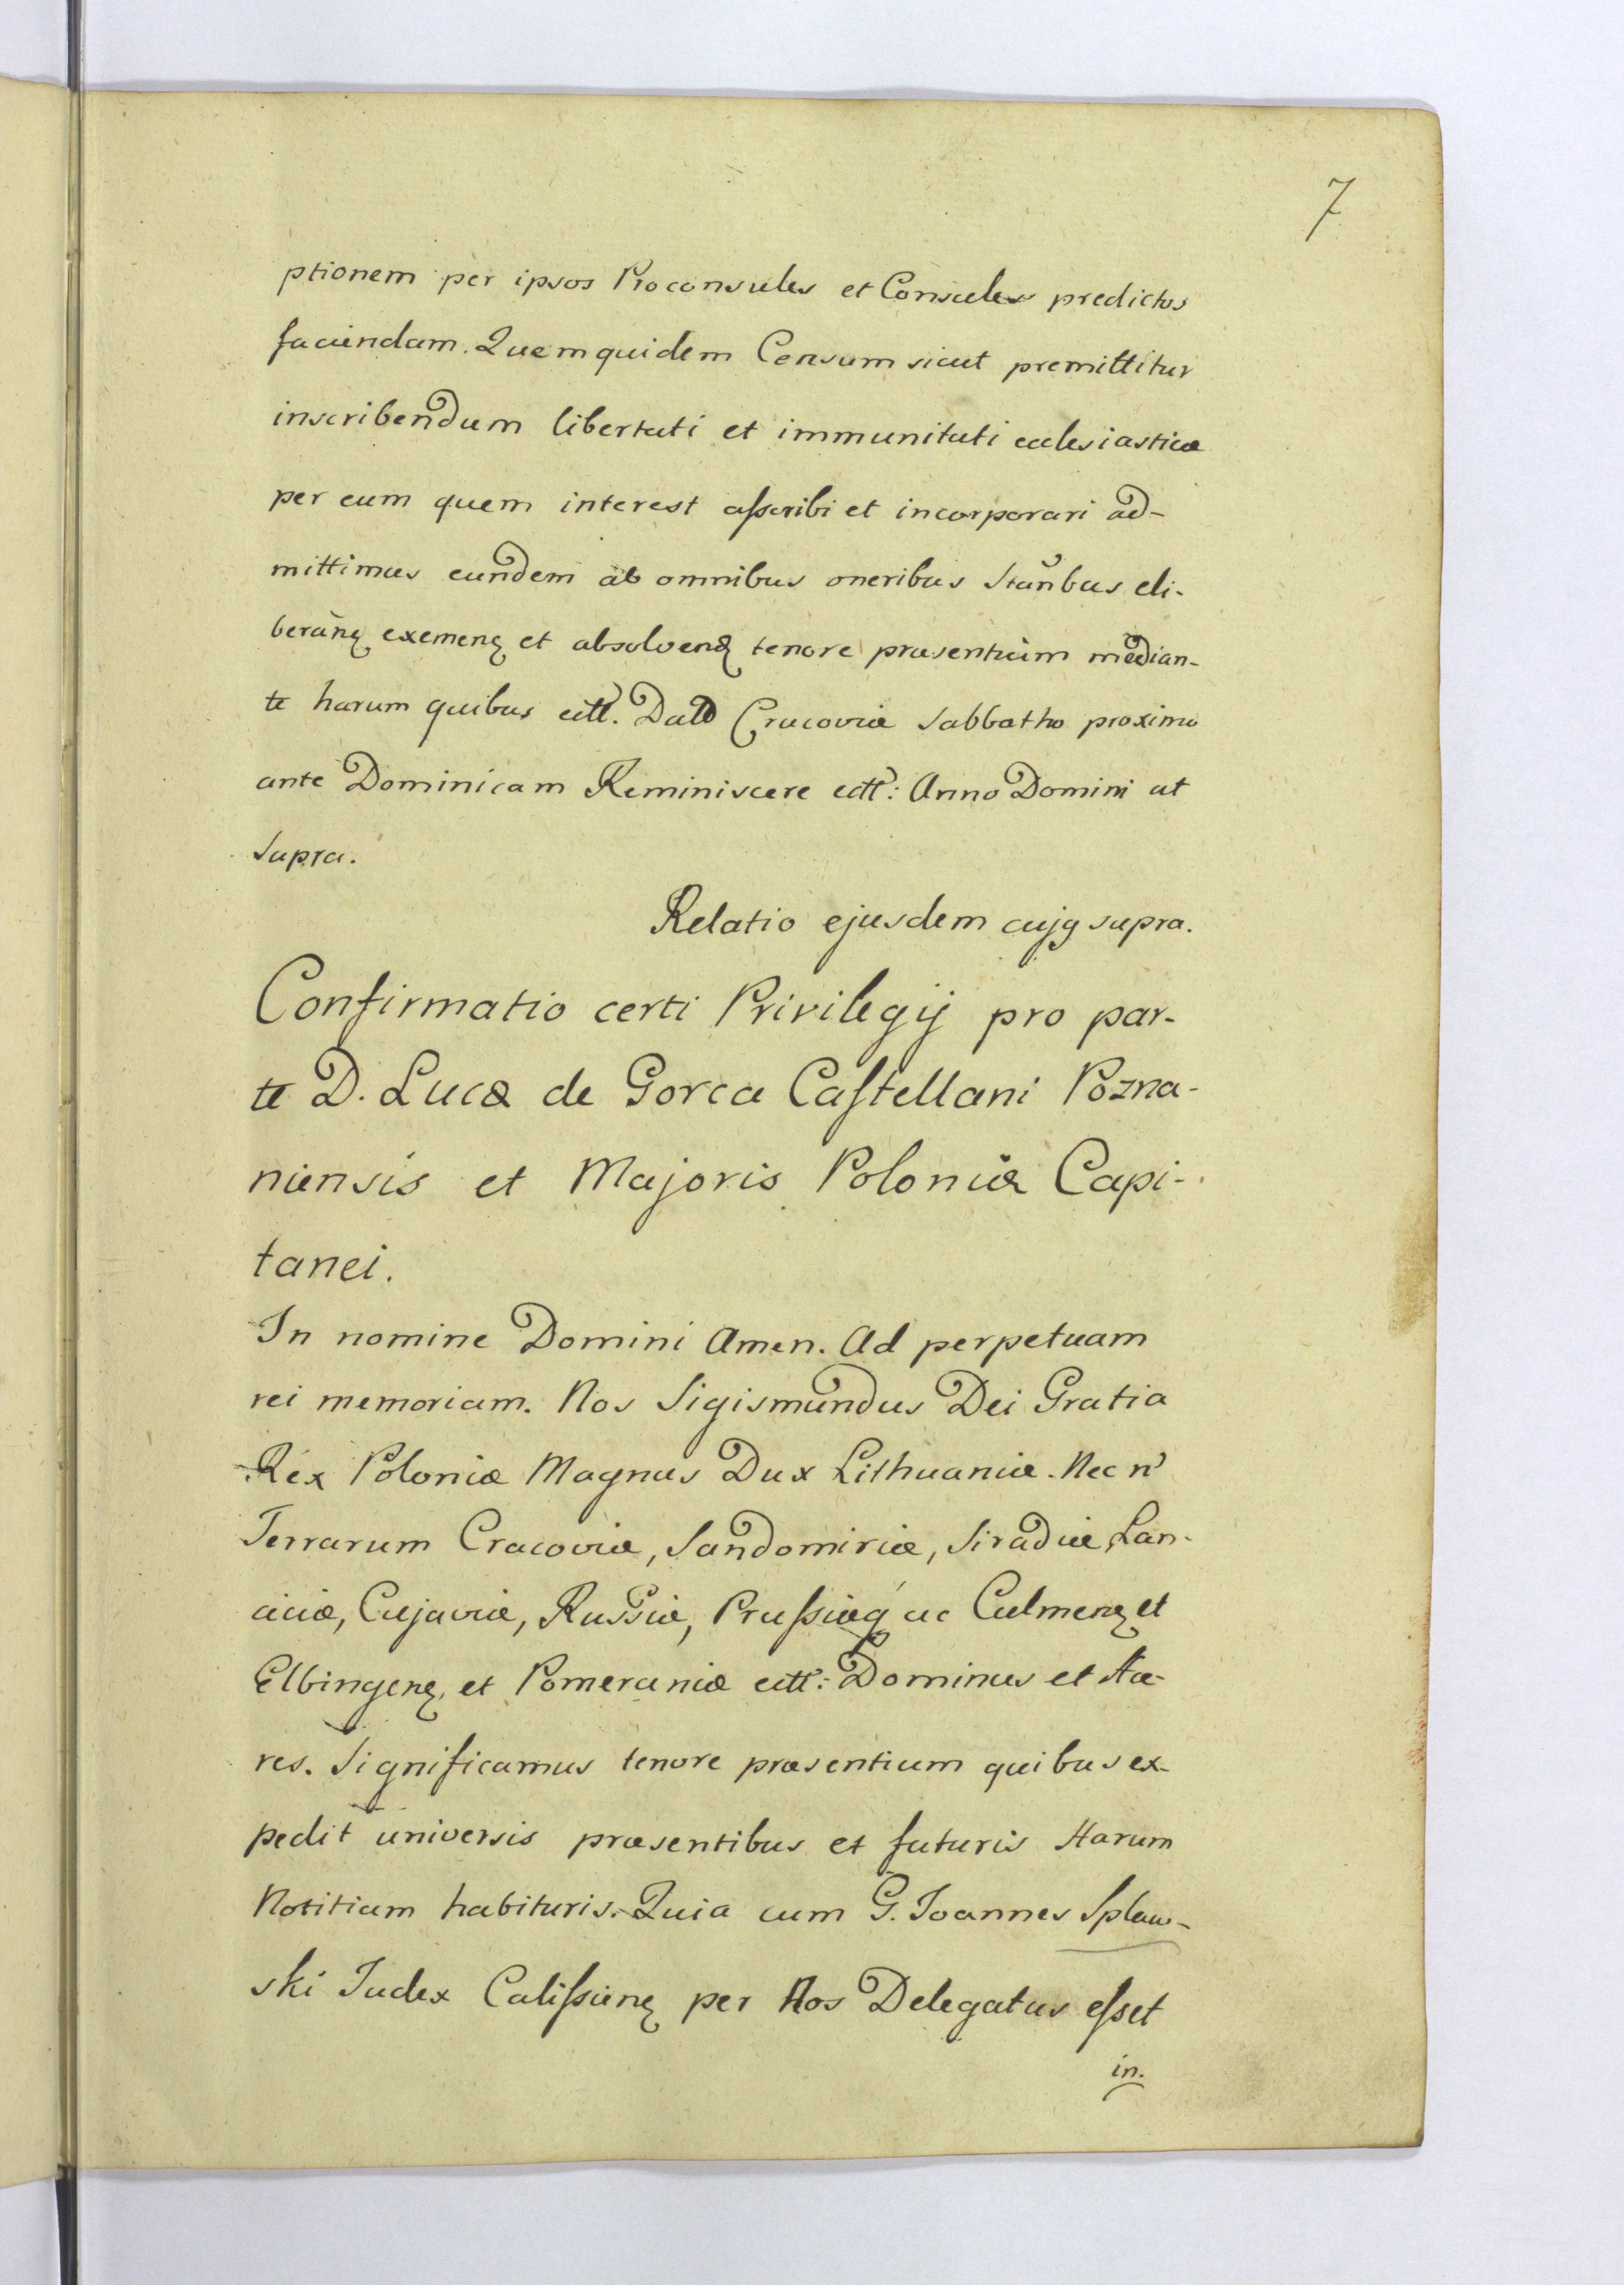 7
ptionem per ipsos Proconsules et Consules predictos
faciendam. Quemquidem Censum sicut premittitur
inscribendum libertati et immunitati ecclesiasticæ
per eum quem interest asscribi et incorporari ad-
mittimus eundem ab omnibus oneribus
exemenꝫ et absolvenꝫ tenore præsentium median-
te harum quibus ectt. Datt Cracoviæ Sabbatho proximo
ante Dominicam Reminiscere ectt: Anno Domini ut
supra.
Relatio ejusdem cujꝰ supra.
Confirmatio certi Privilegij pro par-
te D. Lucæ de Gorca Castellani Pozna-
niensis et Majoris Poloniæ Capi-
tanei.
In nomine Domini Amen. Ad perpetuam
rei memoriam. Nos Sigismundus Dei Gratia
Rex Poloniæ Magnus Dux Lithuaniæ. Nec n̄
Terrarum Cracoviæ, Sandomiriæ, Siradiæ, Lan-
ciciæ, Cujaviæ, Russiæ, Prussiæq́ ac Culmenꝫ et
Elbingenꝫ, et Pomeraniæ ectt: Dominus et Hæ-
res. Significamus tenore præsentium quibus ex-
pedit universis præsentibus et futuris Harum
Notitiam habituris. Quia cum G. Joannes Splaw-
ski Judex Calissienꝫ per Nos Delegatus esset
in.